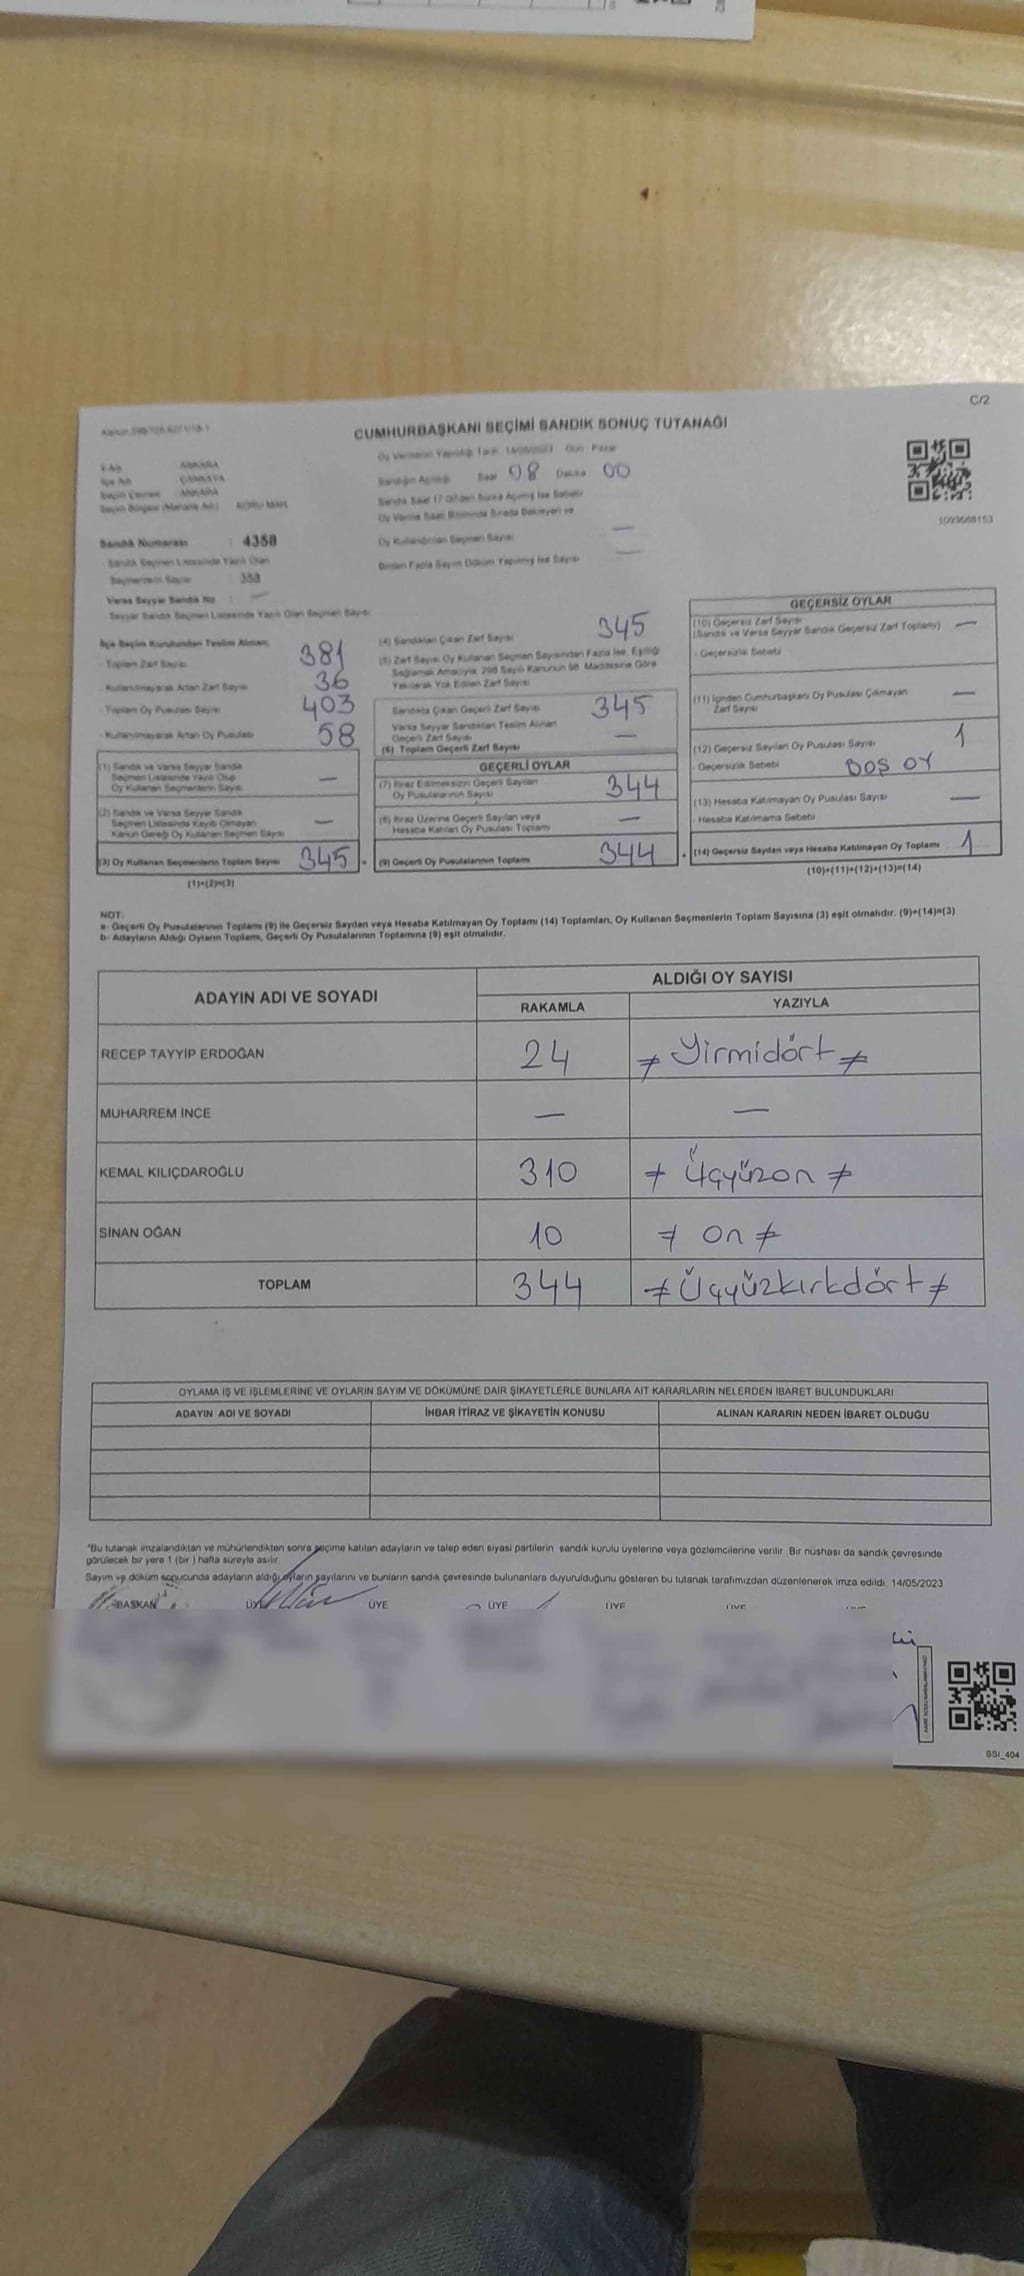 C/2
CUMHURBAŞKANI SEÇİMİ SANDIK SONUÇ TUTANAĞI
Oy Vermenin Yapıldığı Tarih : 14/05/2023 Gün : Pazar
İl Adı : ANKARA
İlçe Adı : ÇANKAYA
Seçim Çevresi : ANKARA
Seçim Bölgesi (Mahalle Adı) : KORU MAH.
Sandığın Açıldığı Saat 08 Dakika 00
Sandık Saat 17.00'den Sonra Açılmış İse Sebebi
Oy Verme Saati Bitiminde Sırada Bekleyen ve
Oy Kullandırılan Seçmen Sayısı —
Birden Fazla Sayım Döküm Yapılmış İse Sayısı —
1093668153
Sandık Numarası : 4358
Sandık Seçmen Listesinde Yazılı Olan
Seçmenlerin Sayısı : 388
Varsa Seyyar Sandık No : —
Seyyar Sandık Seçmen Listesinde Yazılı Olan Seçmen Sayısı
İlçe Seçim Kurulundan Teslim Alınan;
- Toplam Zarf Sayısı 381
- Kullanılmayarak Artan Zarf Sayısı 36
- Toplam Oy Pusulası Sayısı 403
- Kullanılmayarak Artan Oy Pusulası 58
(1) Sandık ve Varsa Seyyar Sandık
Seçmen Listesinde Yazılı Olup
Oy Kullanan Seçmenlerin Sayısı —
(2) Sandık ve Varsa Seyyar Sandık
Seçmen Listesinde Kayıtlı Olmayan
Kanun Gereği Oy Kullanan Seçmen Sayısı —
(3) Oy Kullanan Seçmenlerin Toplam Sayısı 345 =
(1)+(2)=(3)
(4) Sandıktan Çıkan Zarf Sayısı 345
(5) Zarf Sayısı Oy Kullanan Seçmen Sayısından Fazla İse, Eşitliği
Sağlamak Amacıyla, 298 Sayılı Kanunun 98. Maddesine Göre
Yakılarak Yok Edilen Zarf Sayısı
Sandıkta Çıkan Geçerli Zarf Sayısı 345
Varsa Seyyar Sandıktan Teslim Alınan
Geçerli Zarf Sayısı —
(6) Toplam Geçerli Zarf Sayısı
GEÇERLİ OYLAR
(7) İtiraz Edilmeksizin Geçerli Sayılan
Oy Pusulalarının Sayısı 344
(8) İtiraz Üzerine Geçerli Sayılan veya
Hesaba Katılan Oy Pusulası Toplamı —
(9) Geçerli Oy Pusulalarının Toplamı 344 +
GEÇERSİZ OYLAR
(10) Geçersiz Zarf Sayısı
(Sandık ve Varsa Seyyar Sandık Geçersiz Zarf Toplamı) —
- Geçersizlik Sebebi
(11) İçinden Cumhurbaşkanı Oy Pusulası Çıkmayan
Zarf Sayısı —
(12) Geçersiz Sayılan Oy Pusulası Sayısı 1
- Geçersizlik Sebebi BOŞ OY
(13) Hesaba Katılmayan Oy Pusulası Sayısı —
- Hesaba Katılmama Sebebi
(14) Geçersiz Sayılan veya Hesaba Katılmayan Oy Toplamı 1
(10)+(11)+(12)+(13)=(14)
NOT:
a- Geçerli Oy Pusulalarının Toplamı (9) ile Geçersiz Sayılan veya Hesaba Katılmayan Oy Toplamı (14) Toplamları, Oy Kullanan Seçmenlerin Toplam Sayısına (3) eşit olmalıdır. (9)+(14)=(3)
b- Adayların Aldığı Oyların Toplamı, Geçerli Oy Pusulalarının Toplamına (9) eşit olmalıdır.
ADAYIN ADI VE SOYADI
ALDIĞI OY SAYISI
RAKAMLA YAZIYLA
RECEP TAYYİP ERDOĞAN 24 ≠ Yirmidört ≠
MUHARREM İNCE — —
KEMAL KILIÇDAROĞLU 310 ≠ Üçyüzon ≠
SİNAN OĞAN 10 ≠ On ≠
TOPLAM 344 ≠ Üçyüzkırkdört ≠
OYLAMA İŞ VE İŞLEMLERİNE VE OYLARIN SAYIM VE DÖKÜMÜNE DAİR ŞİKAYETLERLE BUNLARA AİT KARARLARIN NELERDEN İBARET BULUNDUKLARI
ADAYIN ADI VE SOYADI İHBAR İTİRAZ VE ŞİKAYETİN KONUSU ALINAN KARARIN NEDEN İBARET OLDUĞU
*Bu tutanak imzalandıktan ve mühürlendikten sonra seçime katılan adayların ve talep eden siyasi partilerin sandık kurulu üyelerine veya gözlemcilerine verilir. Bir nüshası da sandık çevresinde
görülecek bir yere 1 (bir ) hafta süreyle asılır.
Sayım ve döküm sonucunda adayların aldığı oyların sayılarını ve bunların sandık çevresinde bulunanlara duyurulduğunu gösteren bu tutanak tarafımızdan düzenlenerek imza edildi. 14/05/2023
BAŞKAN ÜYE ÜYE ÜYE ÜYE ÜYE
SSI_404